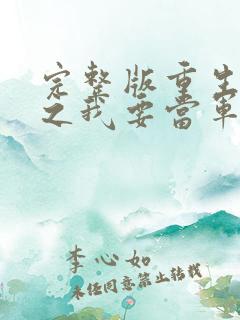 完整版重生
之我要当軍
李心如
未经同意禁止转载